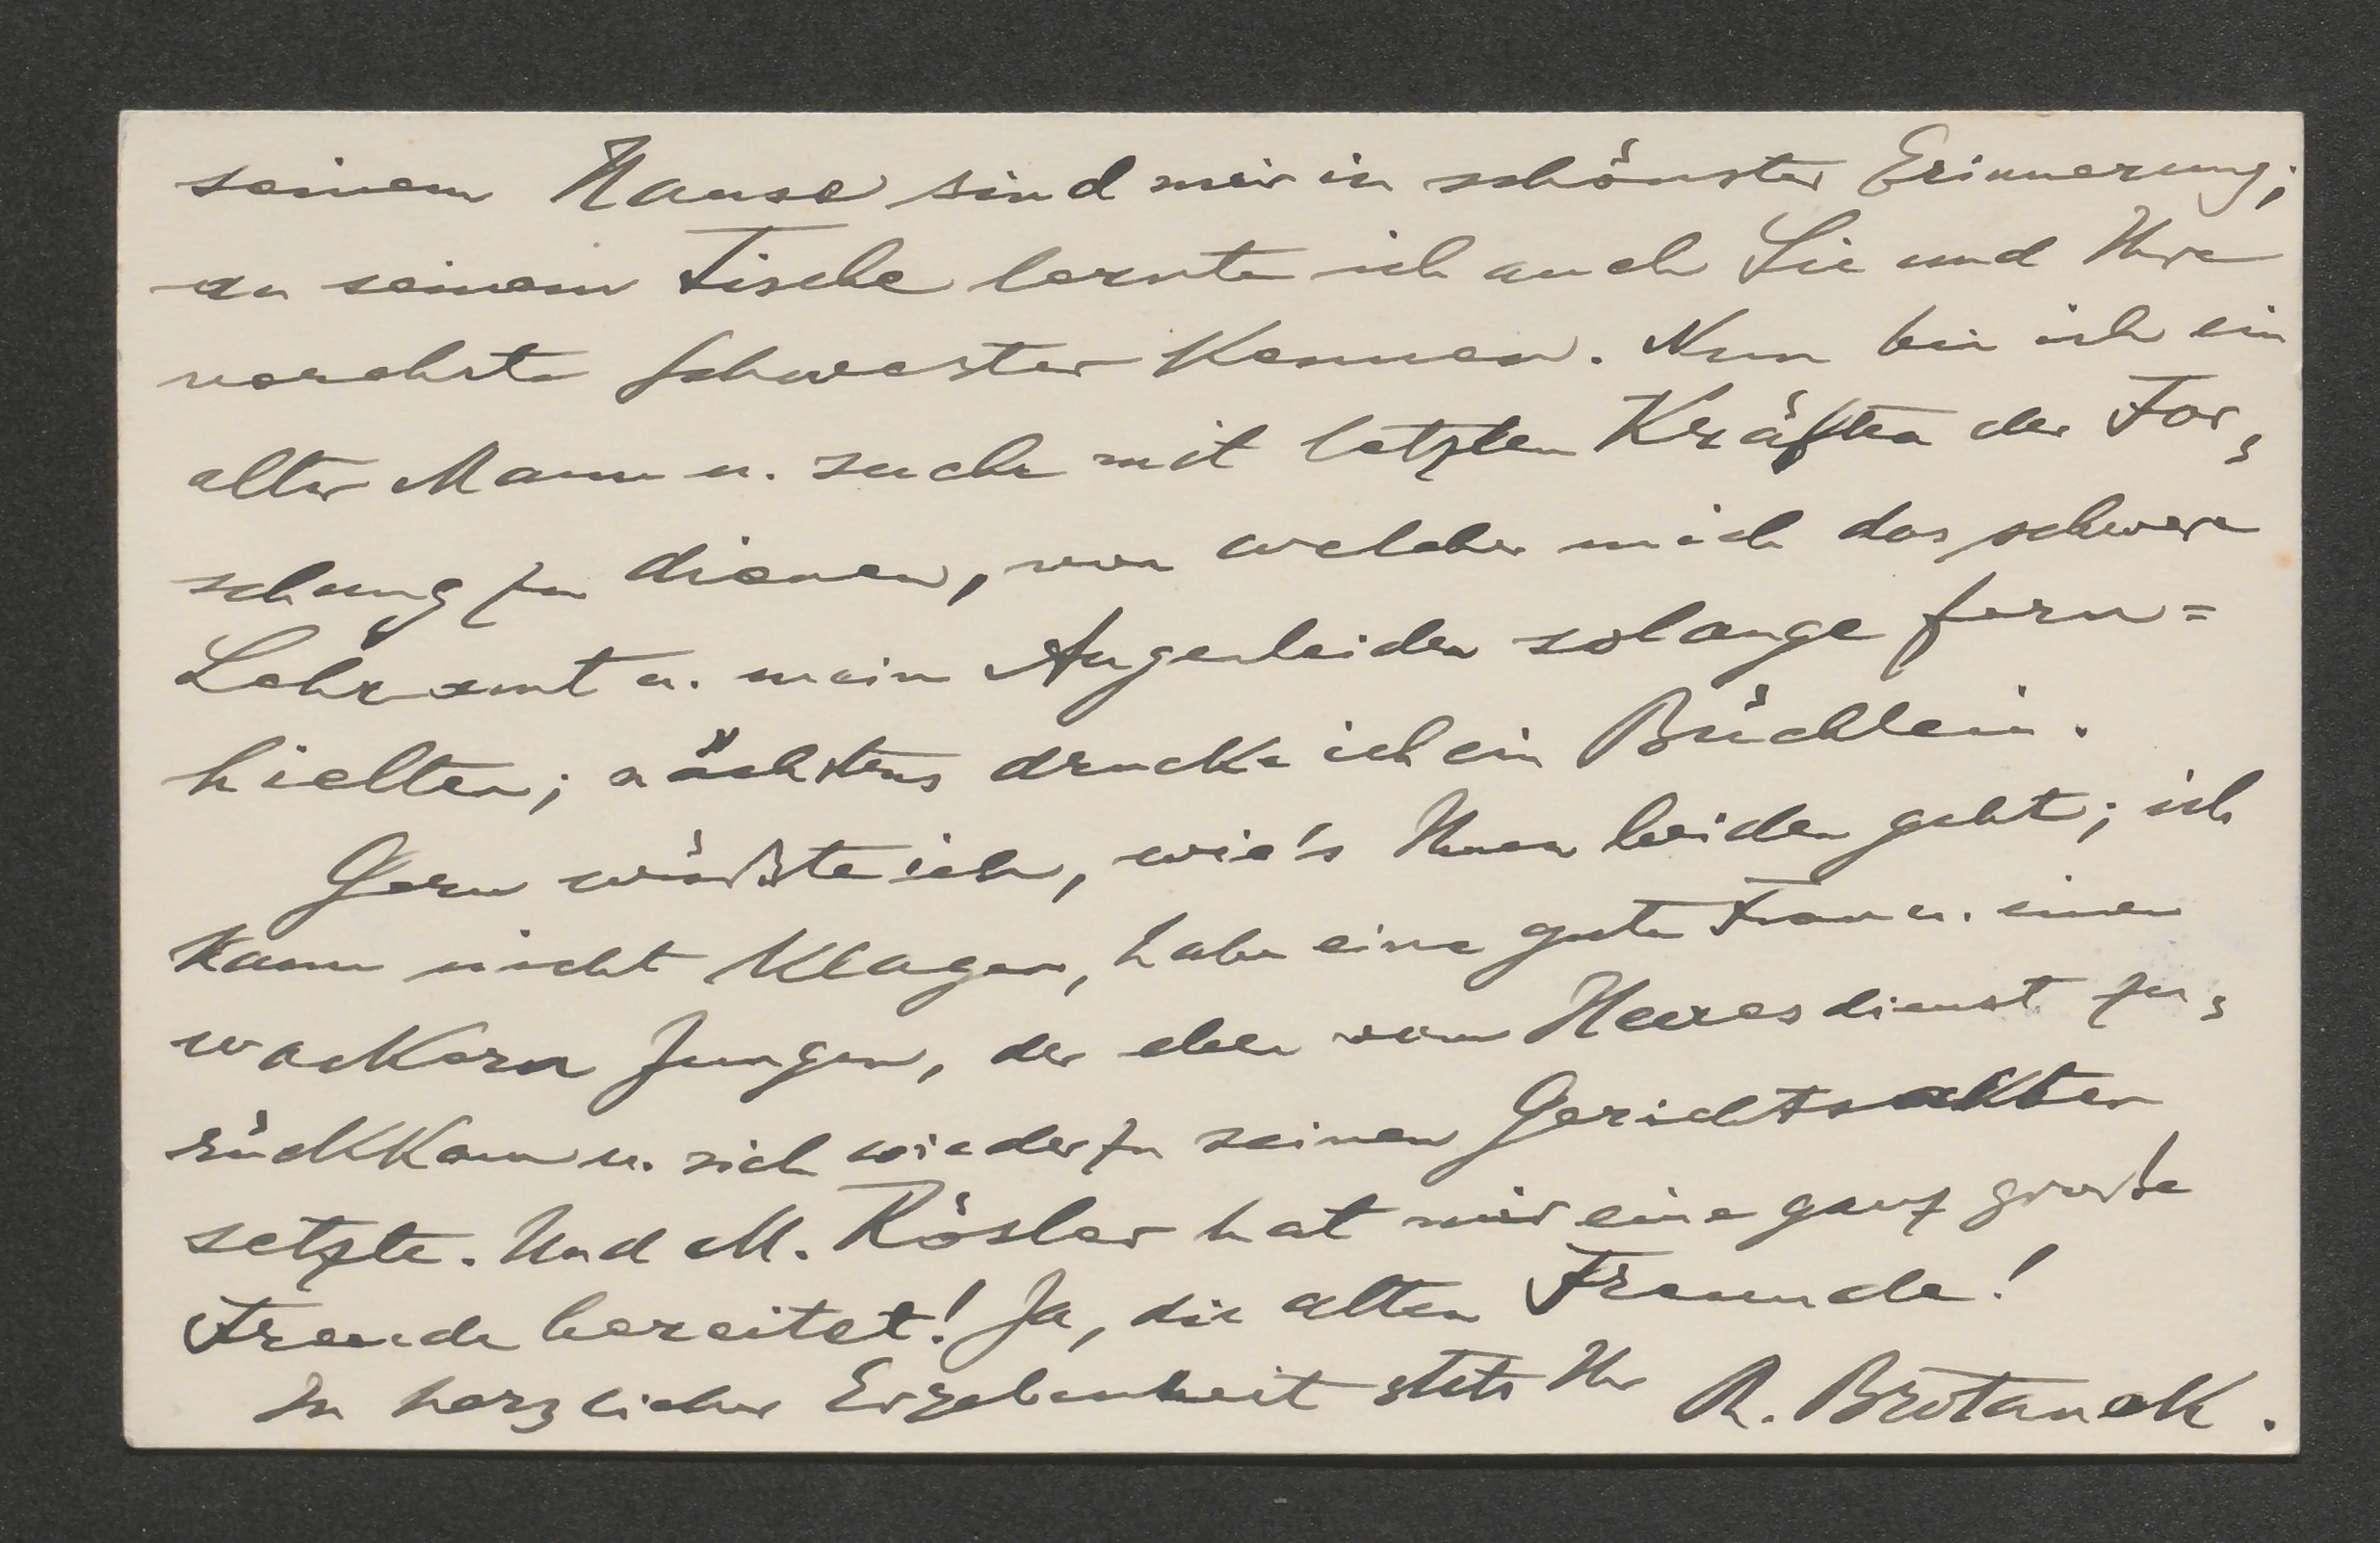 seinem Hause sind mir in schönster Erinnerung;
an seinem Tische lernte ich auch Sie und Ihre
verehrte Schwester kennen. Nun bin ich ein
alter Mann u. suche mit letzten Kräften der For-
schung zu dienen, von welcher mich das schwere
Lehramt u. mein Augenleiden solange fern=
hielten; nächstens drucke ich ein Büchlein.
Gern wüßte ich, wie's Ihnen beiden geht; ich
kann nicht klagen, habe eine gute Frau u. einen
wackern Jungen, der eben vom Heeresdienst zu-
rückkam u. sich wieder zu seinen Gerichtsakten
setzte. Und M. Rösler hat mir eine ganz große
Freude bereitet! Ja, die alten Freunde!
In herzlicher Ergebenheit stets Ihr R. Brotanek.